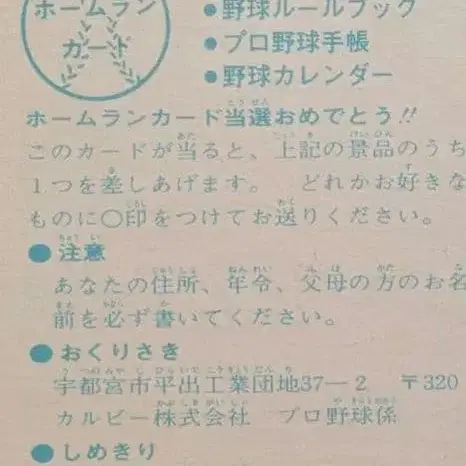 ホームラン
カード
●野球ルールブック
●プロ野球手帳
●野球カレンダー
ホームランカード当選おめでとう!!
このカードが当ると、上記の景品のうち
1つを差しあげます。 どれかお好きな
ものに○印をつけてお送りください。
●注意
あなたの住所、年令、父母の方のお名
前を必ず書いてください。
●おくりさき
宇都宮市平出工業団地37—2 〒320
カルビー株式会社 プロ野球係
●しめきり